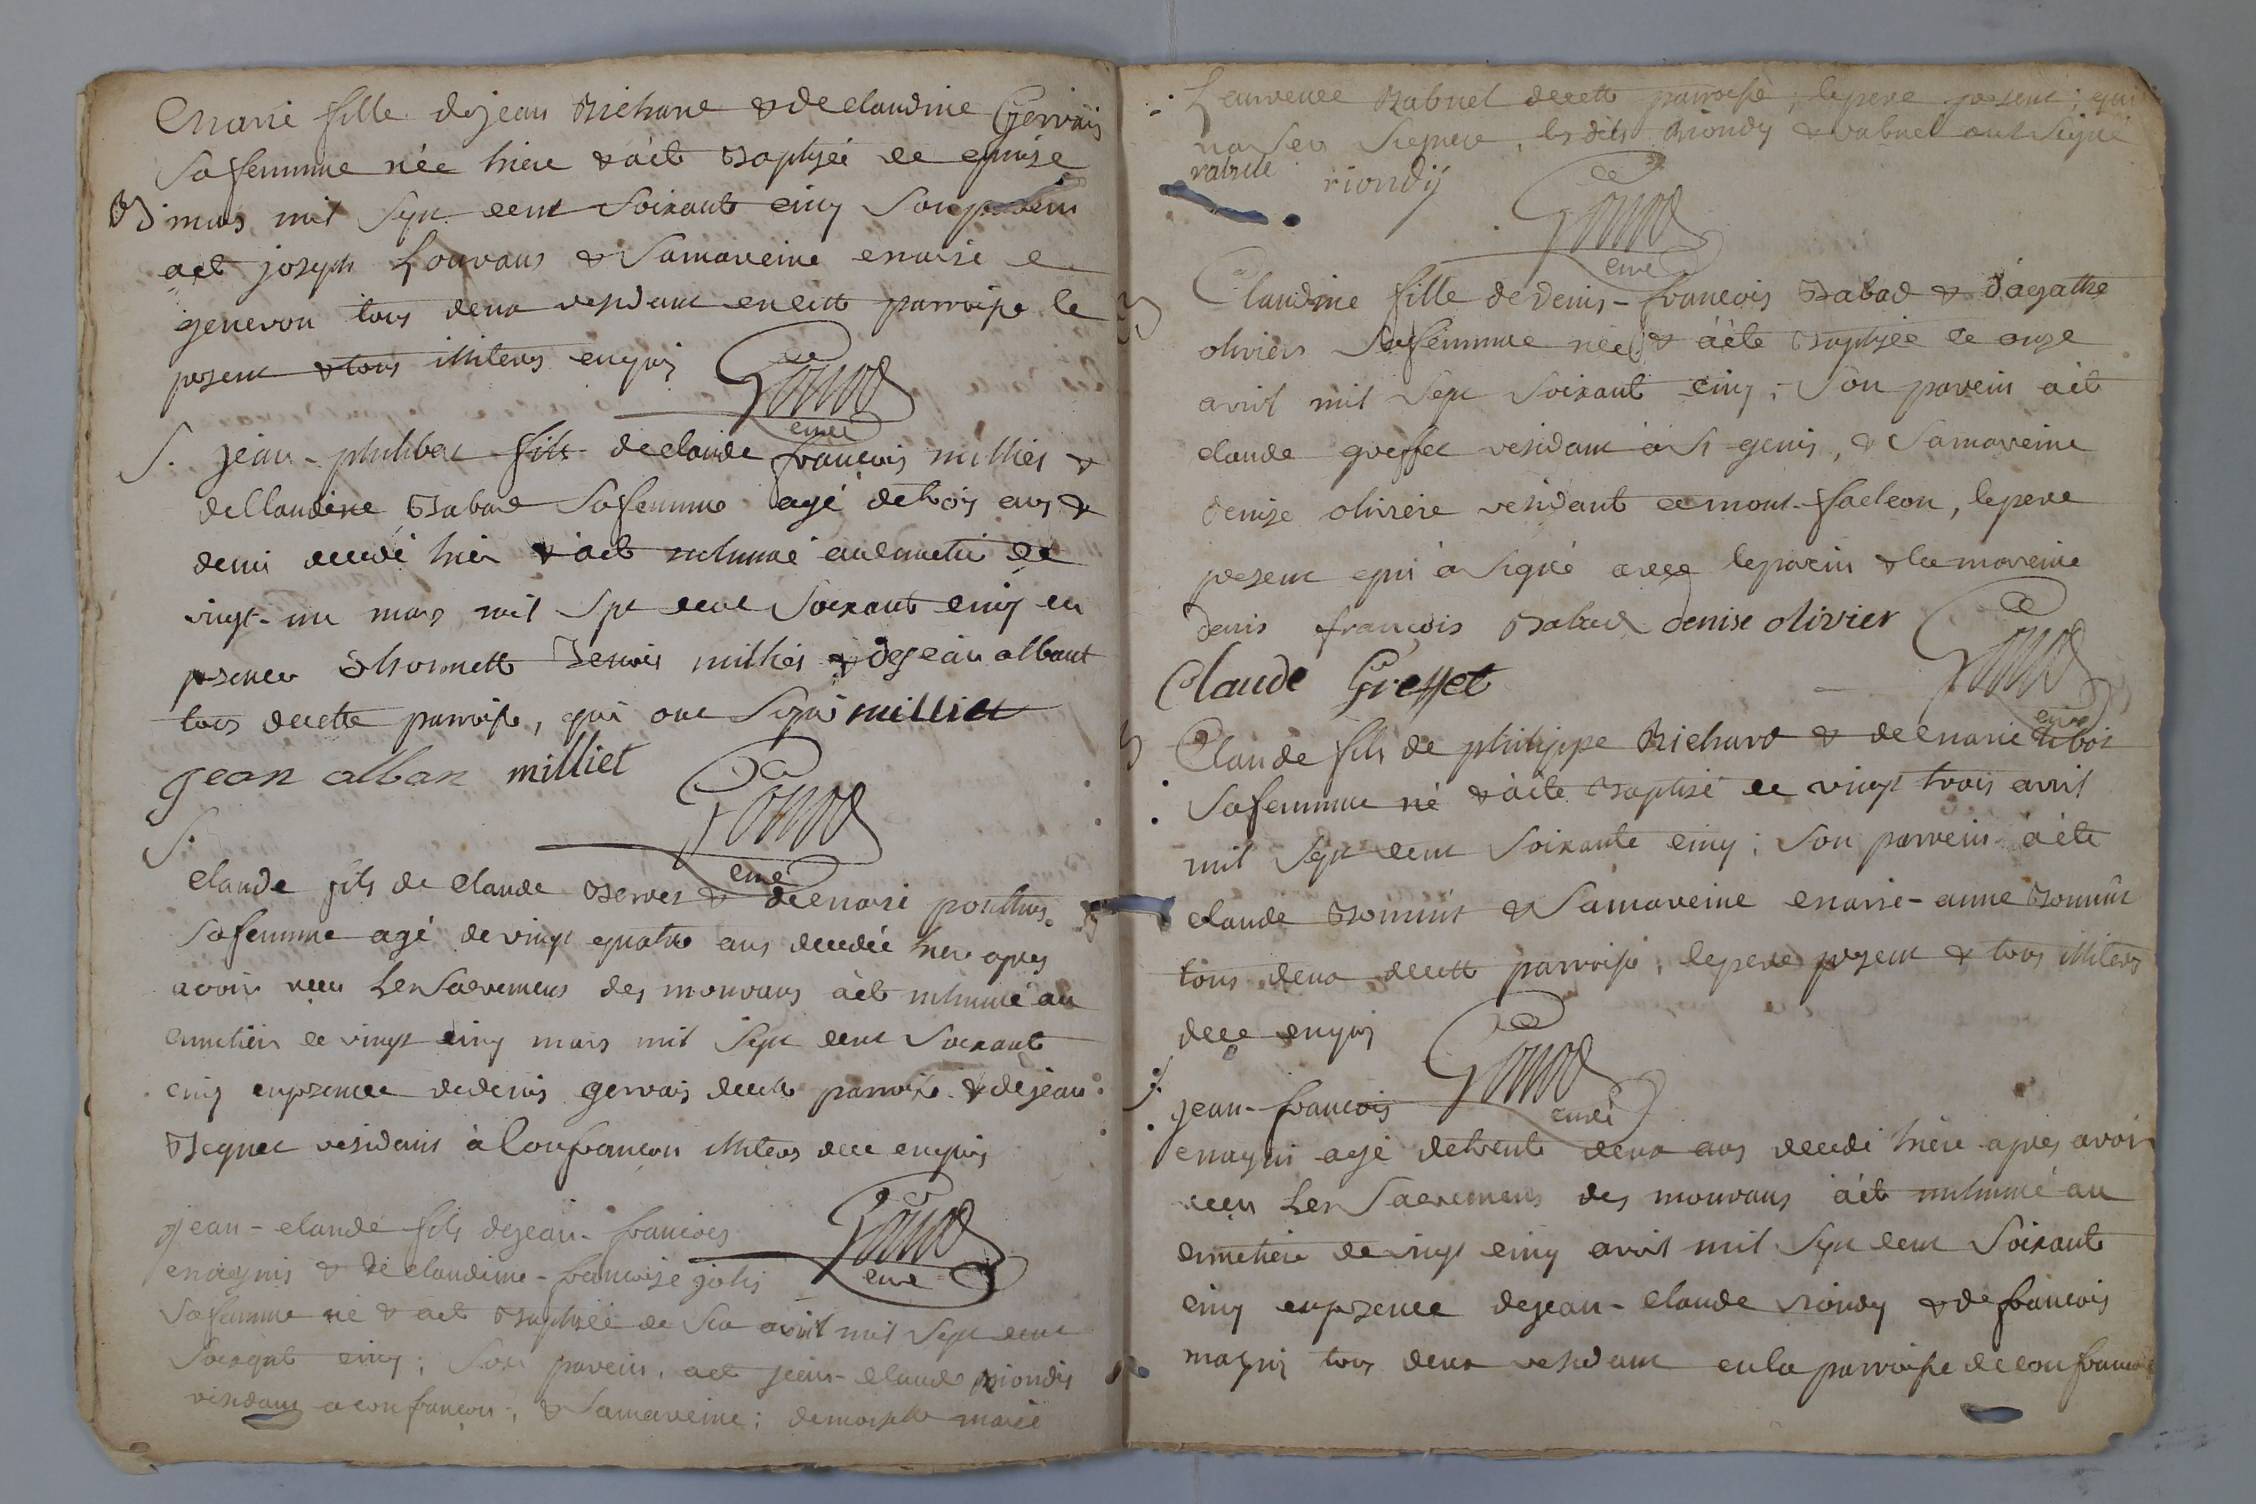 Marie fille de jean Richard & de claudine Gervais
sa femme née hiere & a été Baptizée le quinze
B mars mil sept cent soixante cinq son parein
a été joseph Louvans & sa mareine marie
genevou tous deux residant en cette parroisse le
present & tous illiteres enquis
Gonod
curé
S. jean-philibert fils de claude francois millies &
de Claudine Babad sa femme agé de trois ans &
demi decedé hier & a été inhumé au cimetie le
vingt-un mars mil sept cent soixante cinq en
presence d'honnette denis millies & de jean alband
tous de cette parroisse, qui ont signé milliet
jean alban milliet
Gonod
curé
S.
claude fils de claude & de marie
sa femme agé de vingt quatre ans decedé hiere apres
avoir reçu les sacremens des mourans a été inhumé au
cimetiere le vingt cinq mars mil sept cent soixante
cinq en presence de denis gervais de cette parroisse & de jean
residans à Confrancon illiteres de ce enquis
Gonod
curé
jean-claude fils de jean-francois
magnin & de claudine-francoise jolis
sa femme né & a été Baptizée le six avril mil sept cent
soixante cinq; son parein a été jean-claude riondis
residant a confrançon; & sa mareine; demoiselle marie
Laurence Rabuel de cette parroisse; le pere present; qui
na seu signer, les dits Riondy & rabuel ont signé
rabuele riondÿ
Gonod
curé
B Claudine fille de denis-francois Babad & d'agathe
oliviers sa femme née & a été Baptizée le onze
avril mil sept soixante cinq; son parein a été
claude greffet residant à St genis, & sa mareine
denize oliviere residant a mont-falcon, le pere
present qui à signé avec le parein & la mareine
denis françois Babad denise olivier
Claude Greffet
Gonod
curé
B Claude fils de philippe Richard & de marie
sa femme né & a été Baptisé le vingt trois avril
mil sept cent soixante cinq; son parrein a été
claude & sa mareine marie-anne
tous deux de cette parroisse, le pere present & tous illiteres
de ce enquis
Gonod
curé
S.
jean-francois
magnin agé de trente deux ans decedé hiere apres avoir
reçu les sacremens des mourans a été inhumé au
cimetiere le vingt cinq avril mil sept cent soixante
cinq en presence de jean-claude riondy & de francois
magnin tous deux residant en la parroisse de confrancon